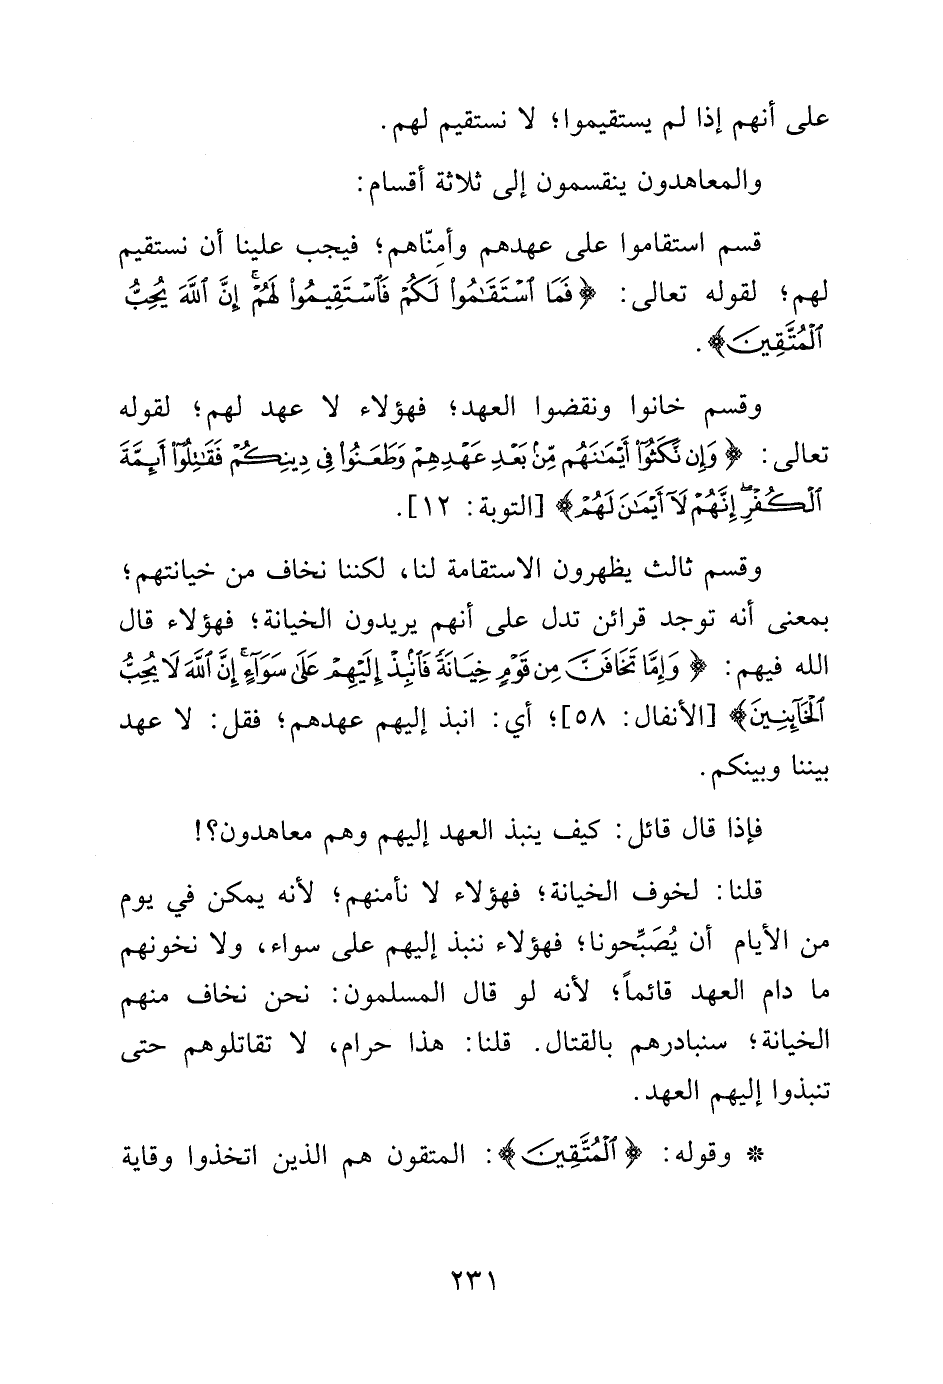 على أنهم إذا لم يستقيموا؛ لا نستقيم لهم.
والمعاهدون ينقسمون إلى ثلاثة أقسام:
قسم استقاموا على عهدهم وأمِنّاهم؛ فيجب علينا أن نستقيم
لهم؛ لقوله تعالى: ﴿فَمَا ٱسْتَقَٰمُوا۟ لَكُمْ فَٱسْتَقِيمُوا۟ لَهُمْ ۚ إِنَّ ٱللَّهَ يُحِبُّ
ٱلْمُتَّقِينَ﴾.
وقسم خانوا ونقضوا العهد؛ فهؤلاء لا عهد لهم؛ لقوله
تعالى: ﴿وَإِن نَّكَثُوٓا۟ أَيْمَٰنَهُم مِّنۢ بَعْدِ عَهْدِهِمْ وَطَعَنُوا۟ فِى دِينِكُمْ فَقَٰتِلُوٓا۟ أَئِمَّةَ
ٱلْكُفْرِ ۙ إِنَّهُمْ لَآ أَيْمَٰنَ لَهُمْ﴾ [التوبة: ١٢].
وقسم ثالث يظهرون الاستقامة لنا، لكننا نخاف من خيانتهم؛
بمعنى أنه توجد قرائن تدل على أنهم يريدون الخيانة؛ فهؤلاء قال
الله فيهم: ﴿وَإِمَّا تَخَافَنَّ مِن قَوْمٍ خِيَانَةً فَٱنۢبِذْ إِلَيْهِمْ عَلَىٰ سَوَآءٍ ۚ إِنَّ ٱللَّهَ لَا يُحِبُّ
ٱلْخَآئِنِينَ﴾ [الأنفال: ٥٨]؛ أي: انبذ إليهم عهدهم؛ فقل: لا عهد
بيننا وبينكم.
فإذا قال قائل: كيف ينبذ العهد إليهم وهم معاهدون؟!
قلنا: لخوف الخيانة؛ فهؤلاء لا نأمنهم؛ لأنه يمكن في يوم
من الأيام أن يُصَبِّحونا؛ فهؤلاء ننبذ إليهم على سواء، ولا نخونهم
ما دام العهد قائماً؛ لأنه لو قال المسلمون: نحن نخاف منهم
الخيانة؛ سنبادرهم بالقتال. قلنا: هذا حرام، لا تقاتلوهم حتى
تنبذوا إليهم العهد.
* وقوله: ﴿ٱلْمُتَّقِينَ﴾: المتقون هم الذين اتخذوا وقاية
٢٣١